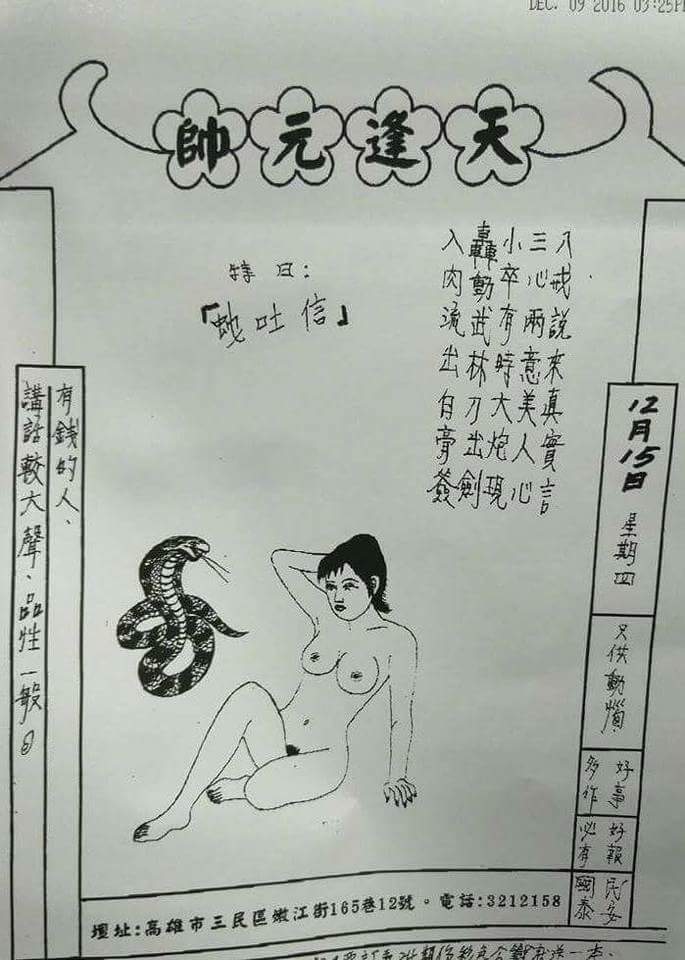 DEC. 09 2016 03:25P
天逢元帥
八戒說來真實言
三心兩意美人心
小卒有時大炮現
轟動武林刀出劍
入肉流出白膏簽
特曰:
「蛇吐信」
12月15日 星期四
只供動腦
好事多作
好報必有
民安國泰
有錢的人、
講話較大聲、品性一般。
壇址:高雄市三民區嫩江街165巷12號。電話:3212158